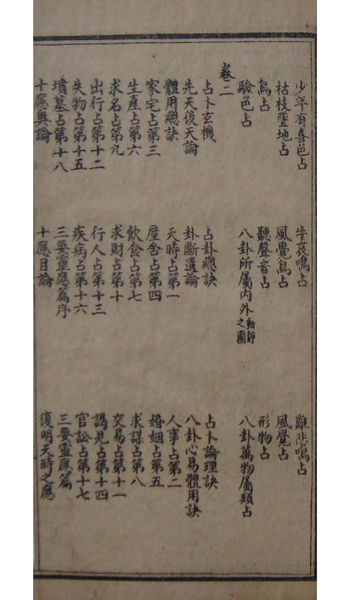 少年有喜色占 牛哀鳴占 雞悲鳴占
枯枝墜地占 風覺鳥占 風覺占
鳥占 聽聲音占 形物占
驗色占 八卦所屬內外動靜之圖 八卦萬物屬類占
卷二
占卜玄機 占卦總訣 占卜論理訣
先天後天論 卦斷遺論 八卦心易體用訣
體用總訣 天時占第一 人事占第二
家宅占第三 屋舍占第四 婚姻占第五
生產占第六 飲食占第七 求謀占第八
求名占第九 求財占第十 交易占第十一
出行占第十二 行人占第十三 謁見占第十四
失物占第十五 疾病占第十六 官訟占第十七
墳墓占第十八 三要靈應篇序 三要靈應篇
十應奧論 十應目論 復明天時之應